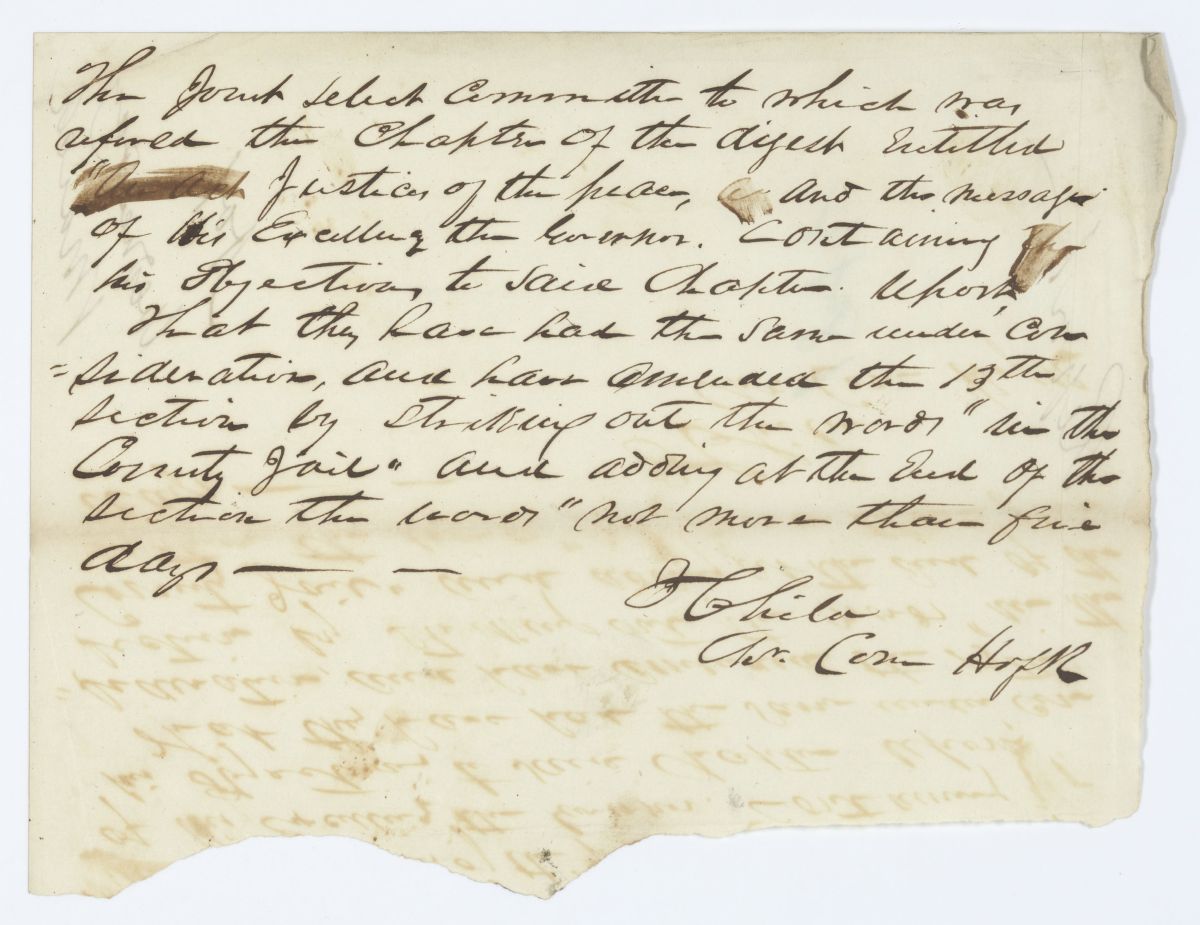 The Joint select Committee to which was
refered the Chapter of the digest Entitled
"An Act Justices of the peace, and the message
of His Excellency the Governor. Containing
his Objections to said Chapter. Report
That they have had the same under Con
=sideration, and have amended the 13th
section by striking out the words "in the
County Jail" and adding at the End of the
section the words "not more than five
days — —
Chn. Com HofR